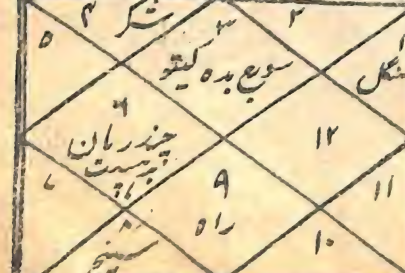 ۴ شکر
۲
۵
۳
سورج بدھ کیتو
منگل
۶
چندرمان
برہسپت
۱۲
۷
۹
راہ
۱۱
۸
سنیچر
۱۰